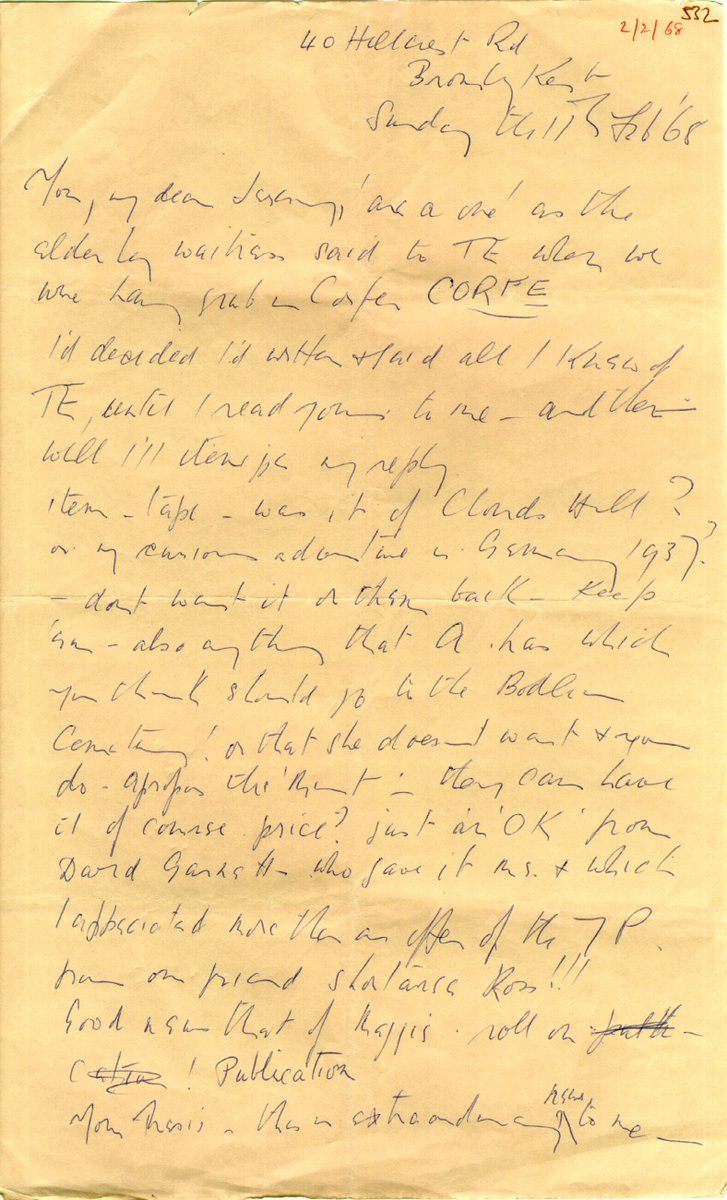 532
2/2/68
40 Hillcrest Rd
Bromley Kent
Sunday the 11th Feb '68
You, my dear Jeremy, 'are a one' as the
elderly waitress said to TE when we
were having grub in Corfe CORFE
I'd decided I'd written & said all I knew of
TE, until I read yours to me – and then
well I'll itemise my reply
item – tape – was it of Clouds Hill?
or my curious adventure in Germany 1937?
– dont want it or them back – Keep
'em – also anything that A. has which
you think should go to the Bodleian
Cemetery! or that she doesn't want & you
do – apropos the Mint – they can have
it of course. price? just an 'OK' from
David Garnett – who gave it me. & which
I appreciated more than an offer of the 7 P.
from our friend Ross!!!
Good news that of Maggs. roll on
! Publication
Your Thesis – this is extraordinary news to me –